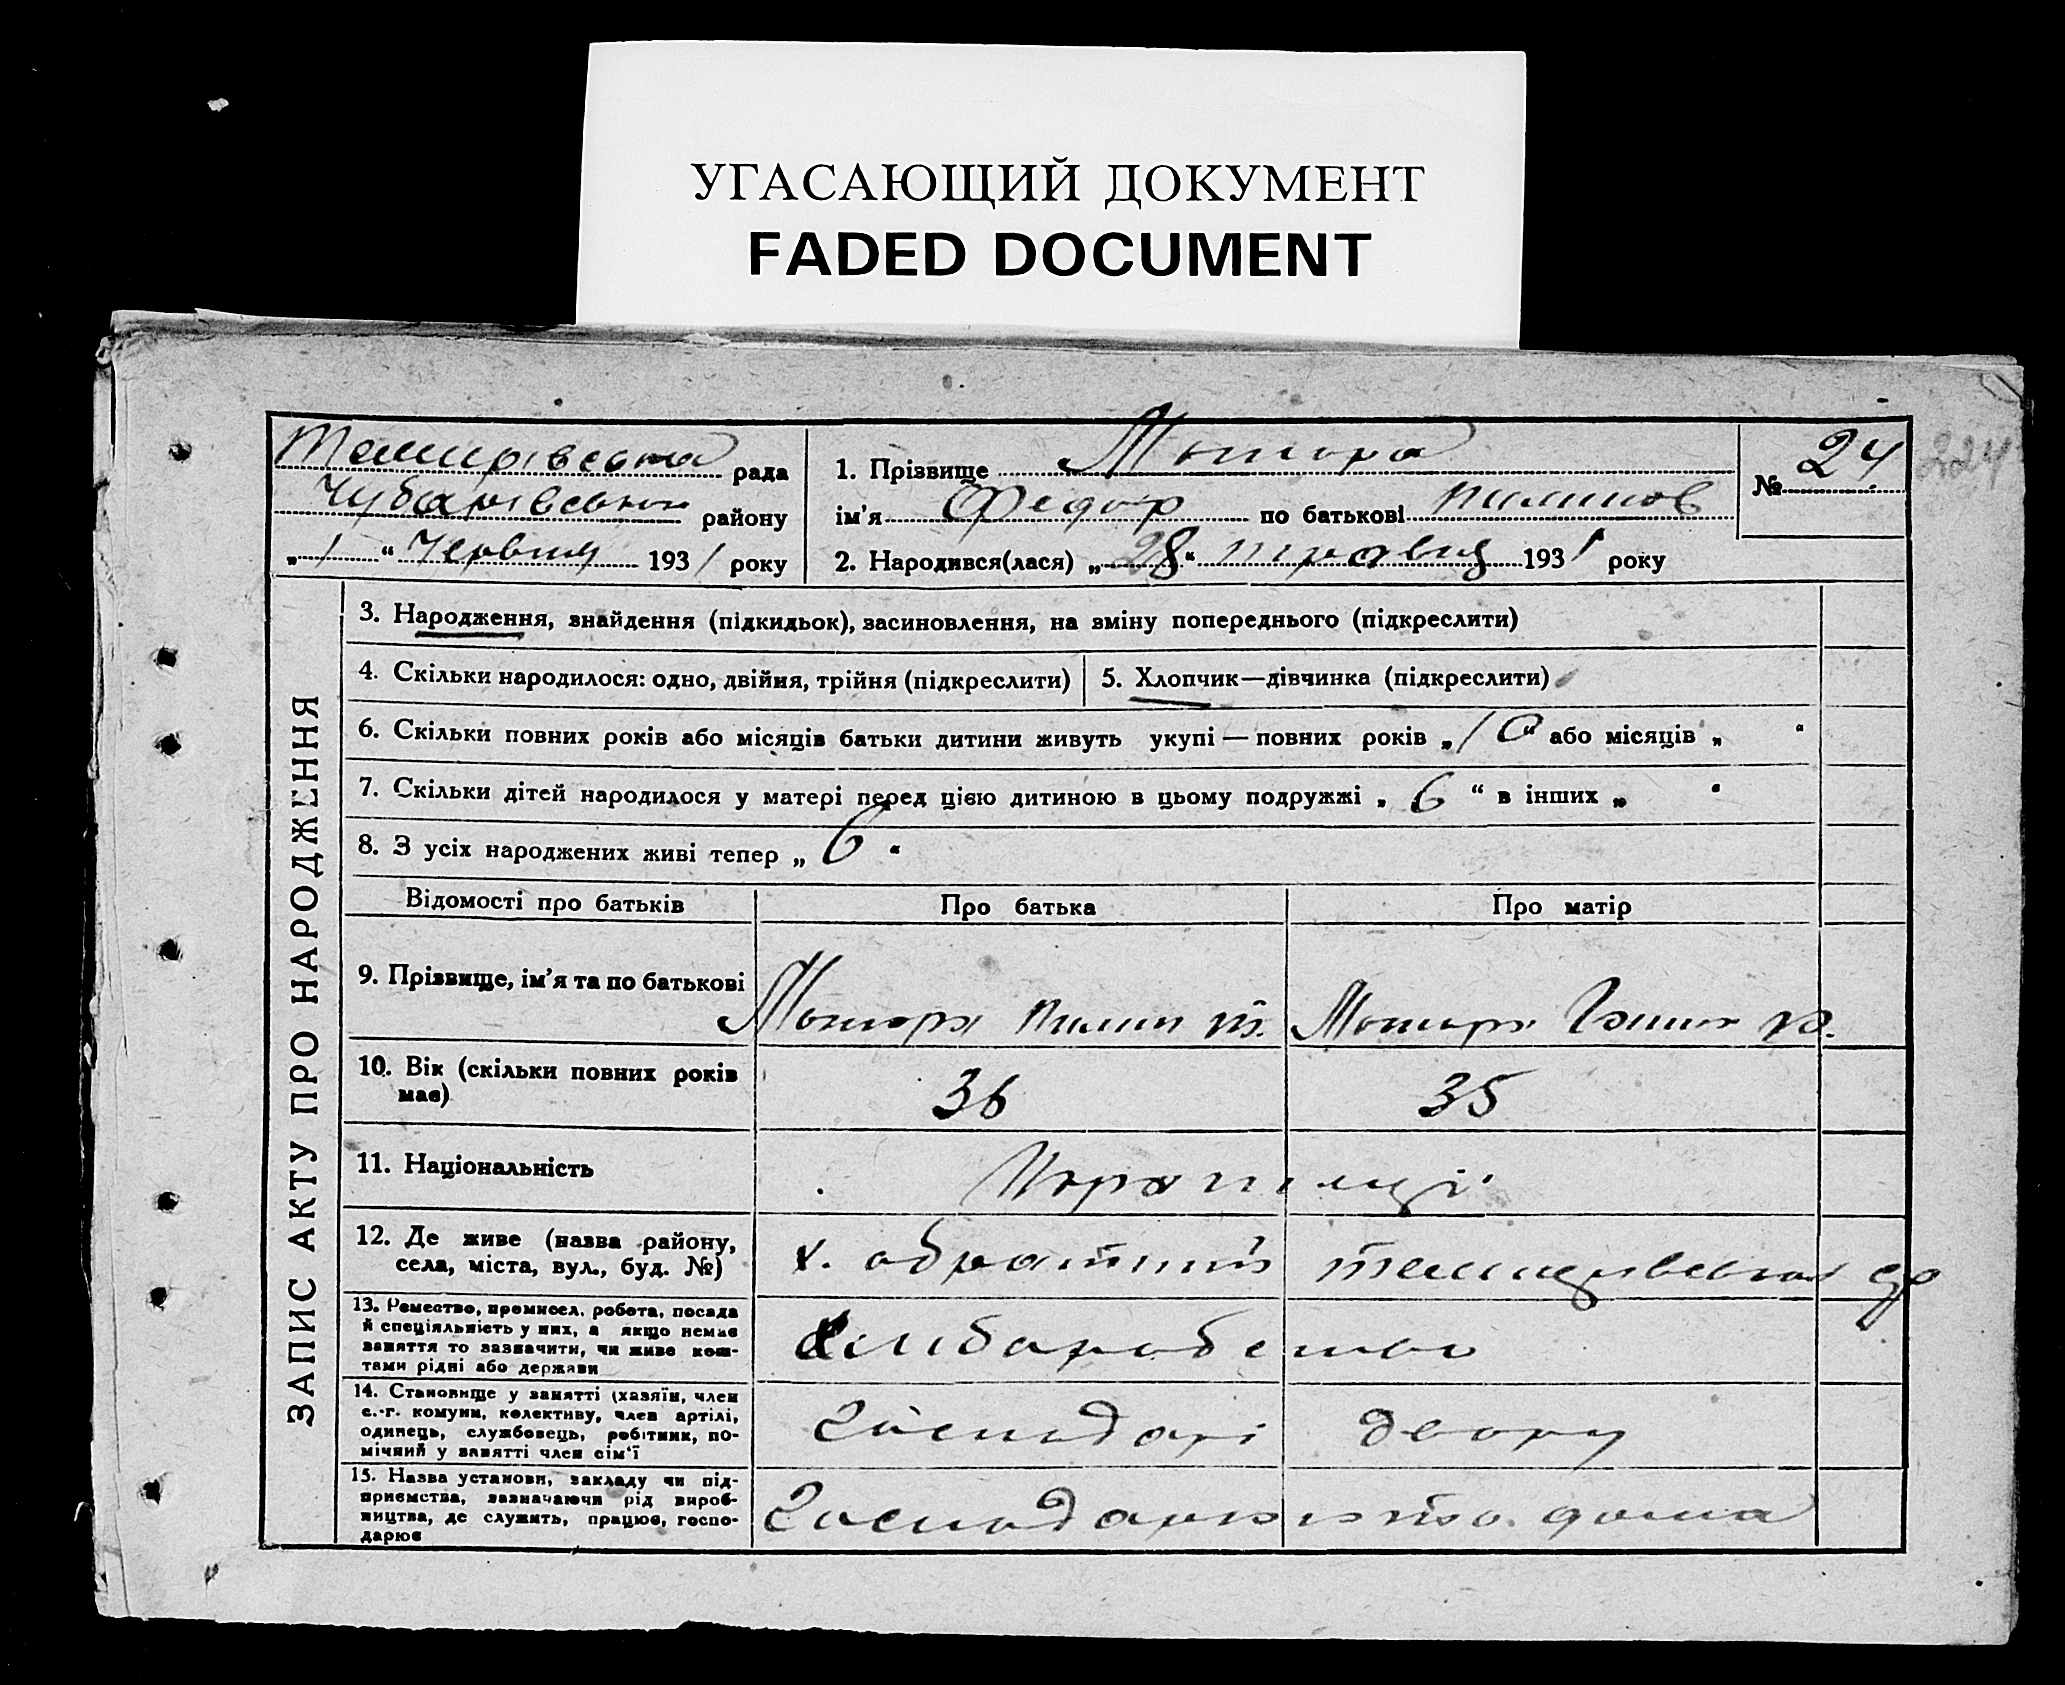 УГАСАЮЩИЙ ДОКУМЕНТ
FADED DOCUMENT
224
Темирівська рада
Чубарівськи району
„ 1 “ Червня 1931 року
1. Прізвище
ім'я Федор по батькові Пилипов
2. Народився(лася) „28“ травня 1931 року
№ 24
ЗАПИС АКТУ ПРО НАРОДЖЕННЯ
3. Народження, знайдення (підкидьок), засиновлення, на зміну попереднього (підкреслити)
4. Скільки народилося: одно, двійня, трійня (підкреслити)
5. Хлопчик—дівчинка (підкреслити)
6. Скільки повних років або місяців батьки дитини живуть укупі — повних років „10“ або місяців „ “
7. Скільки дітей народилося у матері перед цією дитиною в цьому подружжі „ 6 “ в інших „ “
8. З усіх народжених живі тепер „ 6 “
Відомості про батьків
Про батька
Про матір
9. Прізвище, ім'я та по батькові
Пилип
10. Вік (скільки повних років
має)
36
35
11. Національність
12. Де живе (назва району,
села, міста, вул., буд. №)
х.
13. Ремество, промисел, робота, посада
й спеціяльність у них, а якщо немає
заняття то зазначити, чи живе кош-
тами рідні або держави
14. Становище у занятті (хазяїн, член
с.-г. комуни, колективу, член артілі,
одинець, службовець, робітник, по-
мічний у занятті член сім'ї
Господарі двору
15. Назва установи, закладу чи під-
приємства, зазначаючи рід вироб-
ництва, де служить, працює, госпо-
дарює
дома